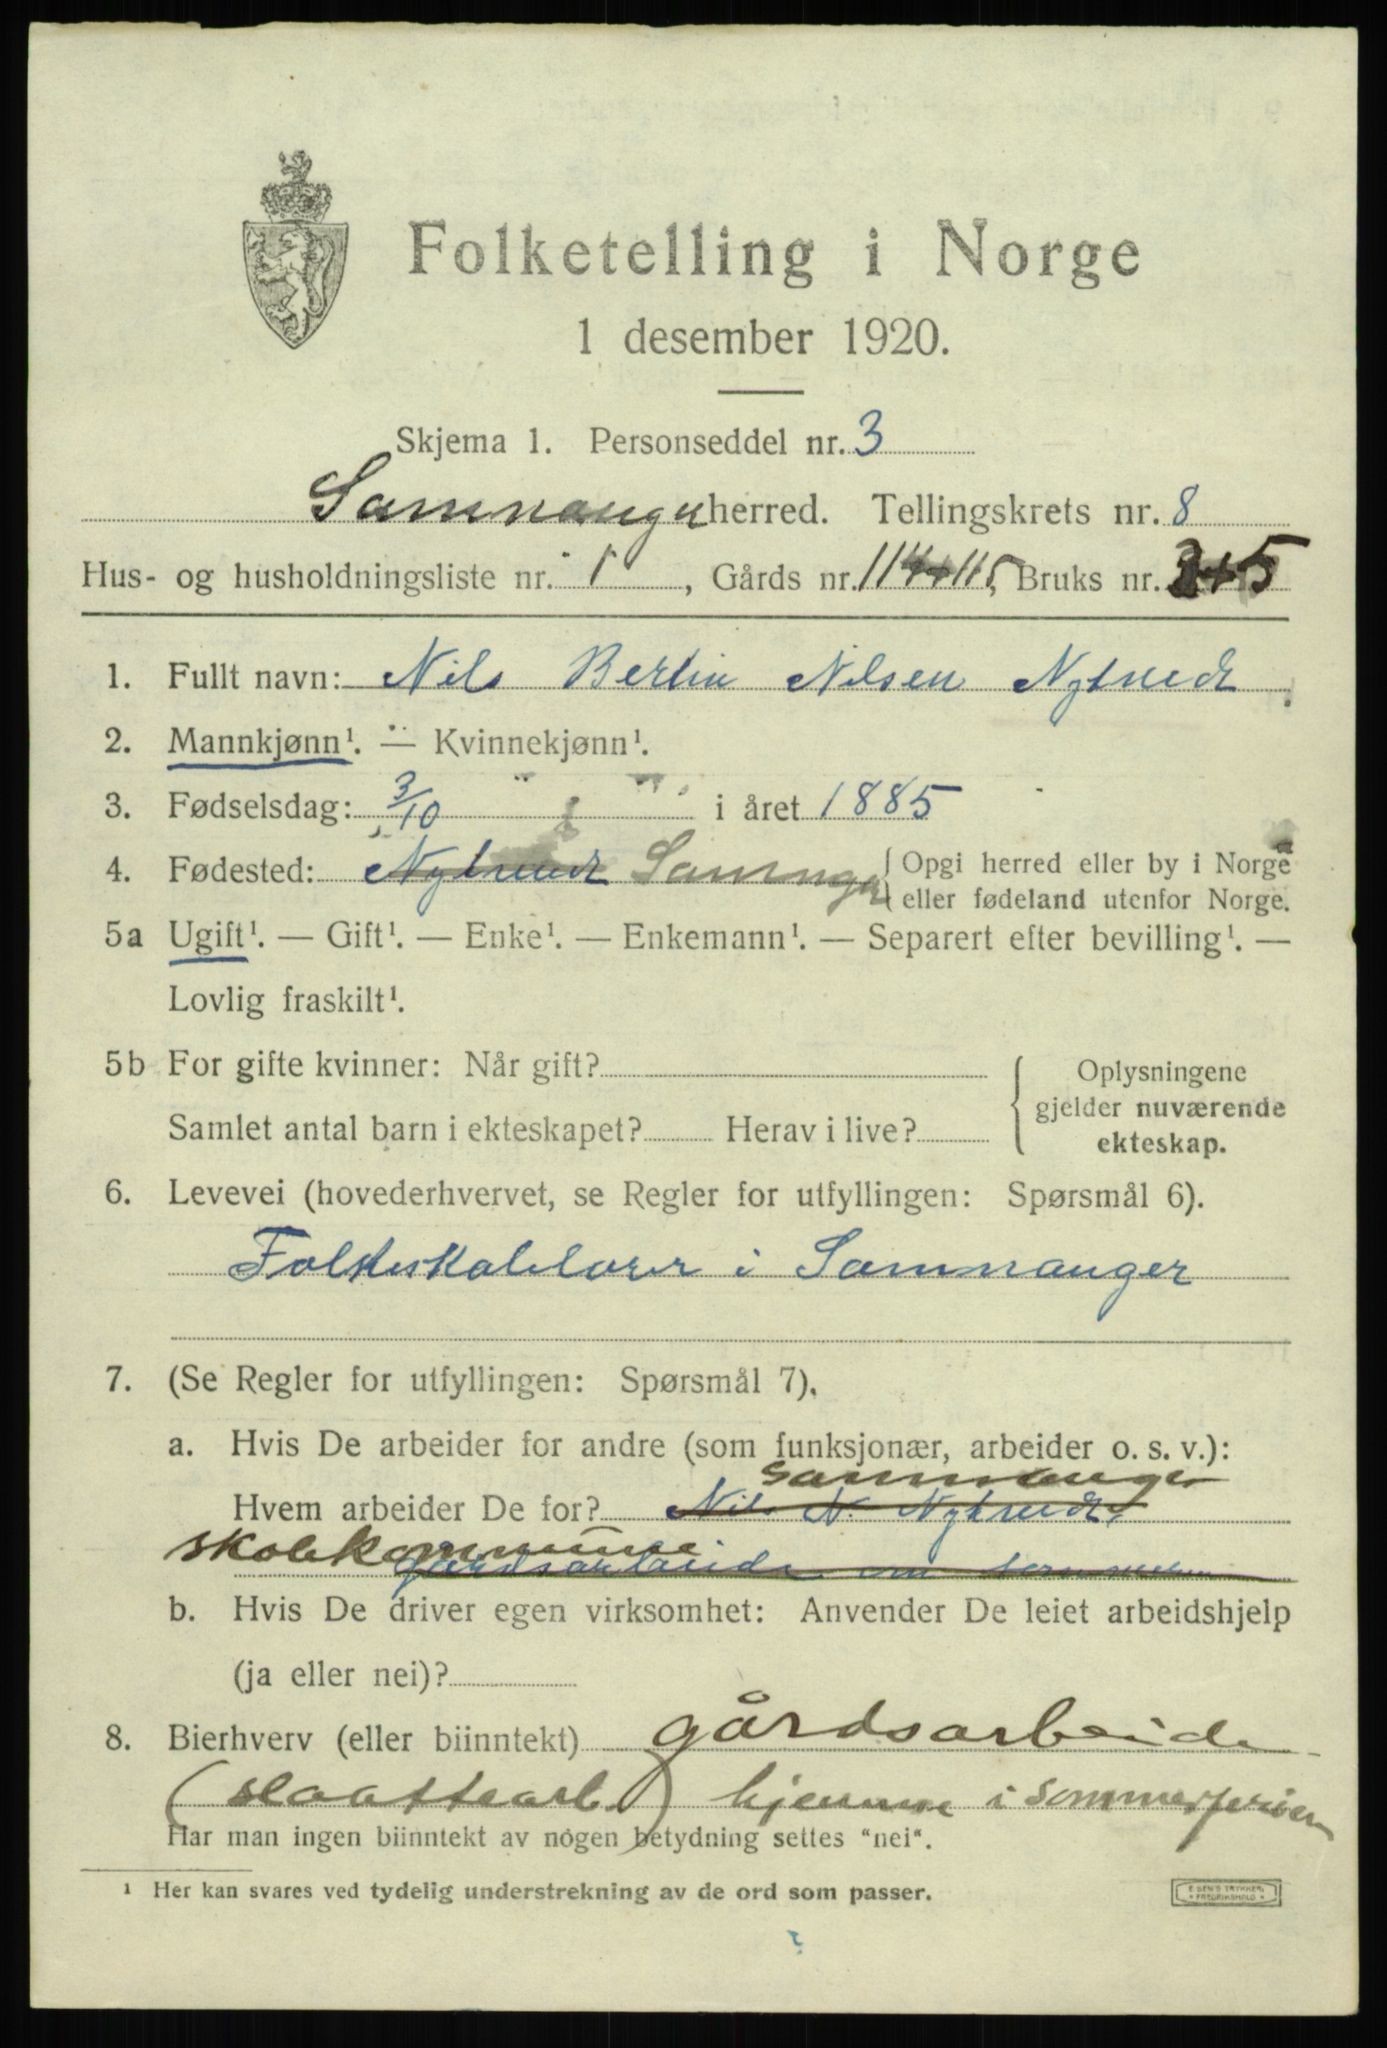 Folketelling i Norge
1 desember 1920.
Skjema 1. Personseddel nr. 3
Samnanger herred. Tellingskrets nr. 8
Hus- og husholdningsliste nr. 1, Gårds nr. 114+115, Bruks nr. 3+5
1. Fullt navn: Nils Bertin Nilsen Nytredt
2. Mannkjønn¹. — Kvinnekjønn¹.
3. Fødselsdag: 3/10 i året 1885
4. Fødested: Nytredt Samnanger { Opgi herred eller by i Norge
eller fødeland utenfor Norge.
5a Ugift¹. — Gift¹. — Enke¹. — Enkemann¹. — Separert efter bevilling¹. —
Lovlig fraskilt¹.
5b For gifte kvinner: Når gift?
Samlet antal barn i ekteskapet? Herav i live?
Oplysningene
gjelder nuværende
ekteskap.
6. Levevei (hovederhvervet, se Regler for utfyllingen: Spørsmål 6).
Folkeskolelærer i Samnanger
7. (Se Regler for utfyllingen: Spørsmål 7).
a. Hvis De arbeider for andre (som funksjonær, arbeider o. s. v.):
Samnanger
Hvem arbeider De for? Nils N. Nytredt,
skolekommune
gårdsarbeide om sommeren
b. Hvis De driver egen virksomhet: Anvender De leiet arbeidshjelp
(ja eller nei)?
8. Bierhverv (eller biinntekt) gårdsarbeide
(slaattearb.) hjemme i sommerferien
Har man ingen biinntekt av nogen betydning settes "nei".
¹ Her kan svares ved tydelig understrekning av de ord som passer.